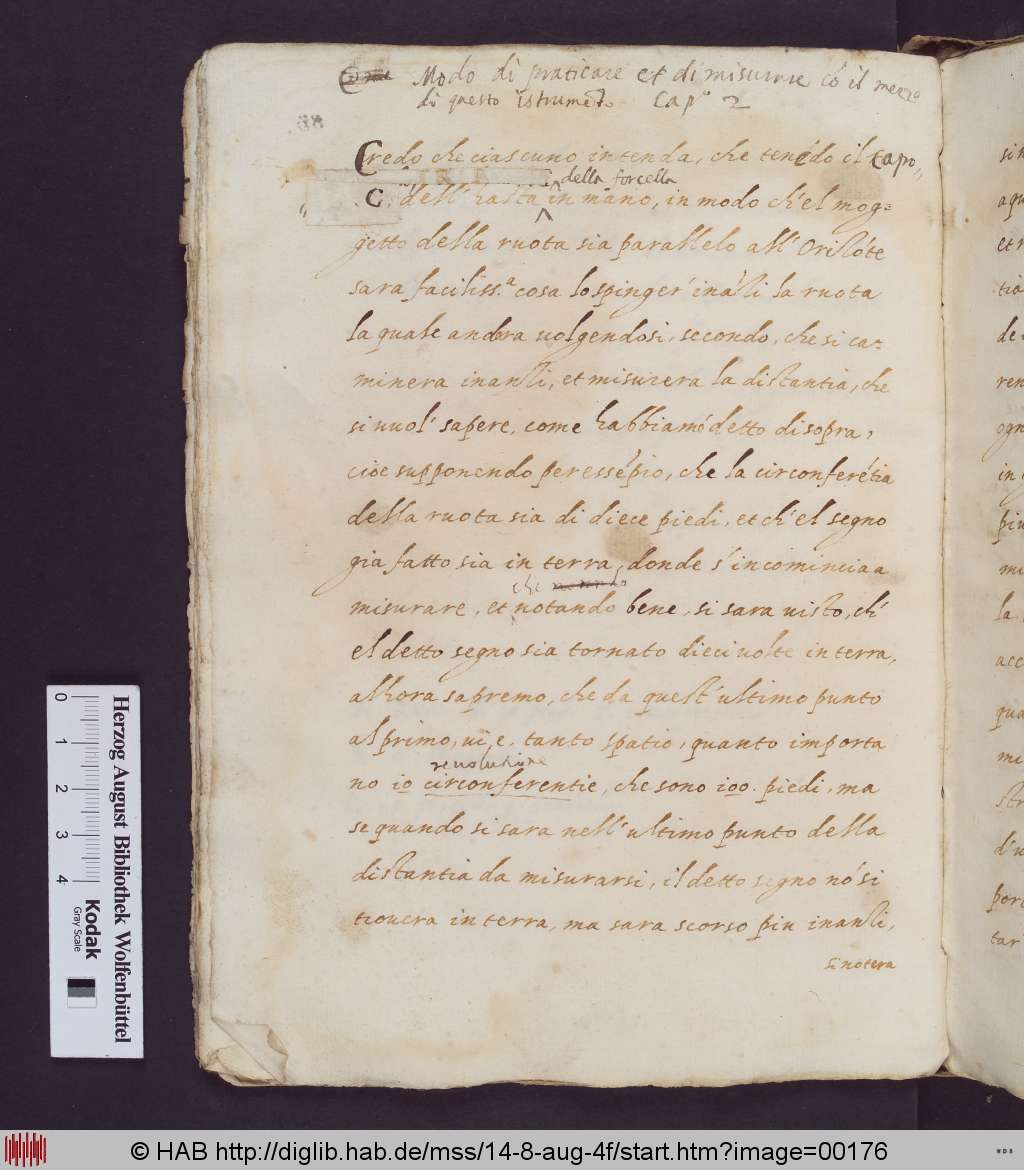 Modo di praticare et di misurare cō il mezzo
di questo istrumēto Capº 2
Credo che ciascuno intenda, che tenēdo il capo,,
C. dell' hasta della forcella in mano, in modo ch'el mog=
getto della ruota sia parallelo all' Orizōte
sara faciliss.ᵃ cosa lo spinger' ināzi la ruota
la quale andera volgendosi, secondo, che si ca=
minera inanzi, et misurera la distantia, che
si vuol' sapere, come habbiamo detto di sopra,
cioe supponendo per essēpio, che la circonferētia
della ruota sia di diece piedi, et ch'el segno
gia fatto sia in terra, donde s'incomincia a
che
misurare, et notando bene, si sara visto, ch'
el detto segno sia tornato dieci volte in terra,
alhora sapremo, che da quest' ultimo punto
al primo, vi, e, tanto spatio, quanto importa
revolutione
no 10 circonferentie, che sono 100. piedi, ma
se quando si sara nell' ultimo punto della
distantia da misurarsi, il detto segno nō si
trovera in terra, ma sara scorso piu inanzi,
si notera
0 1 2 3 4
Herzog August Bibliothek Wolfenbüttel
Kodak
Gray Scale
© HAB http://diglib.hab.de/mss/14-8-aug-4f/start.htm?image=00176